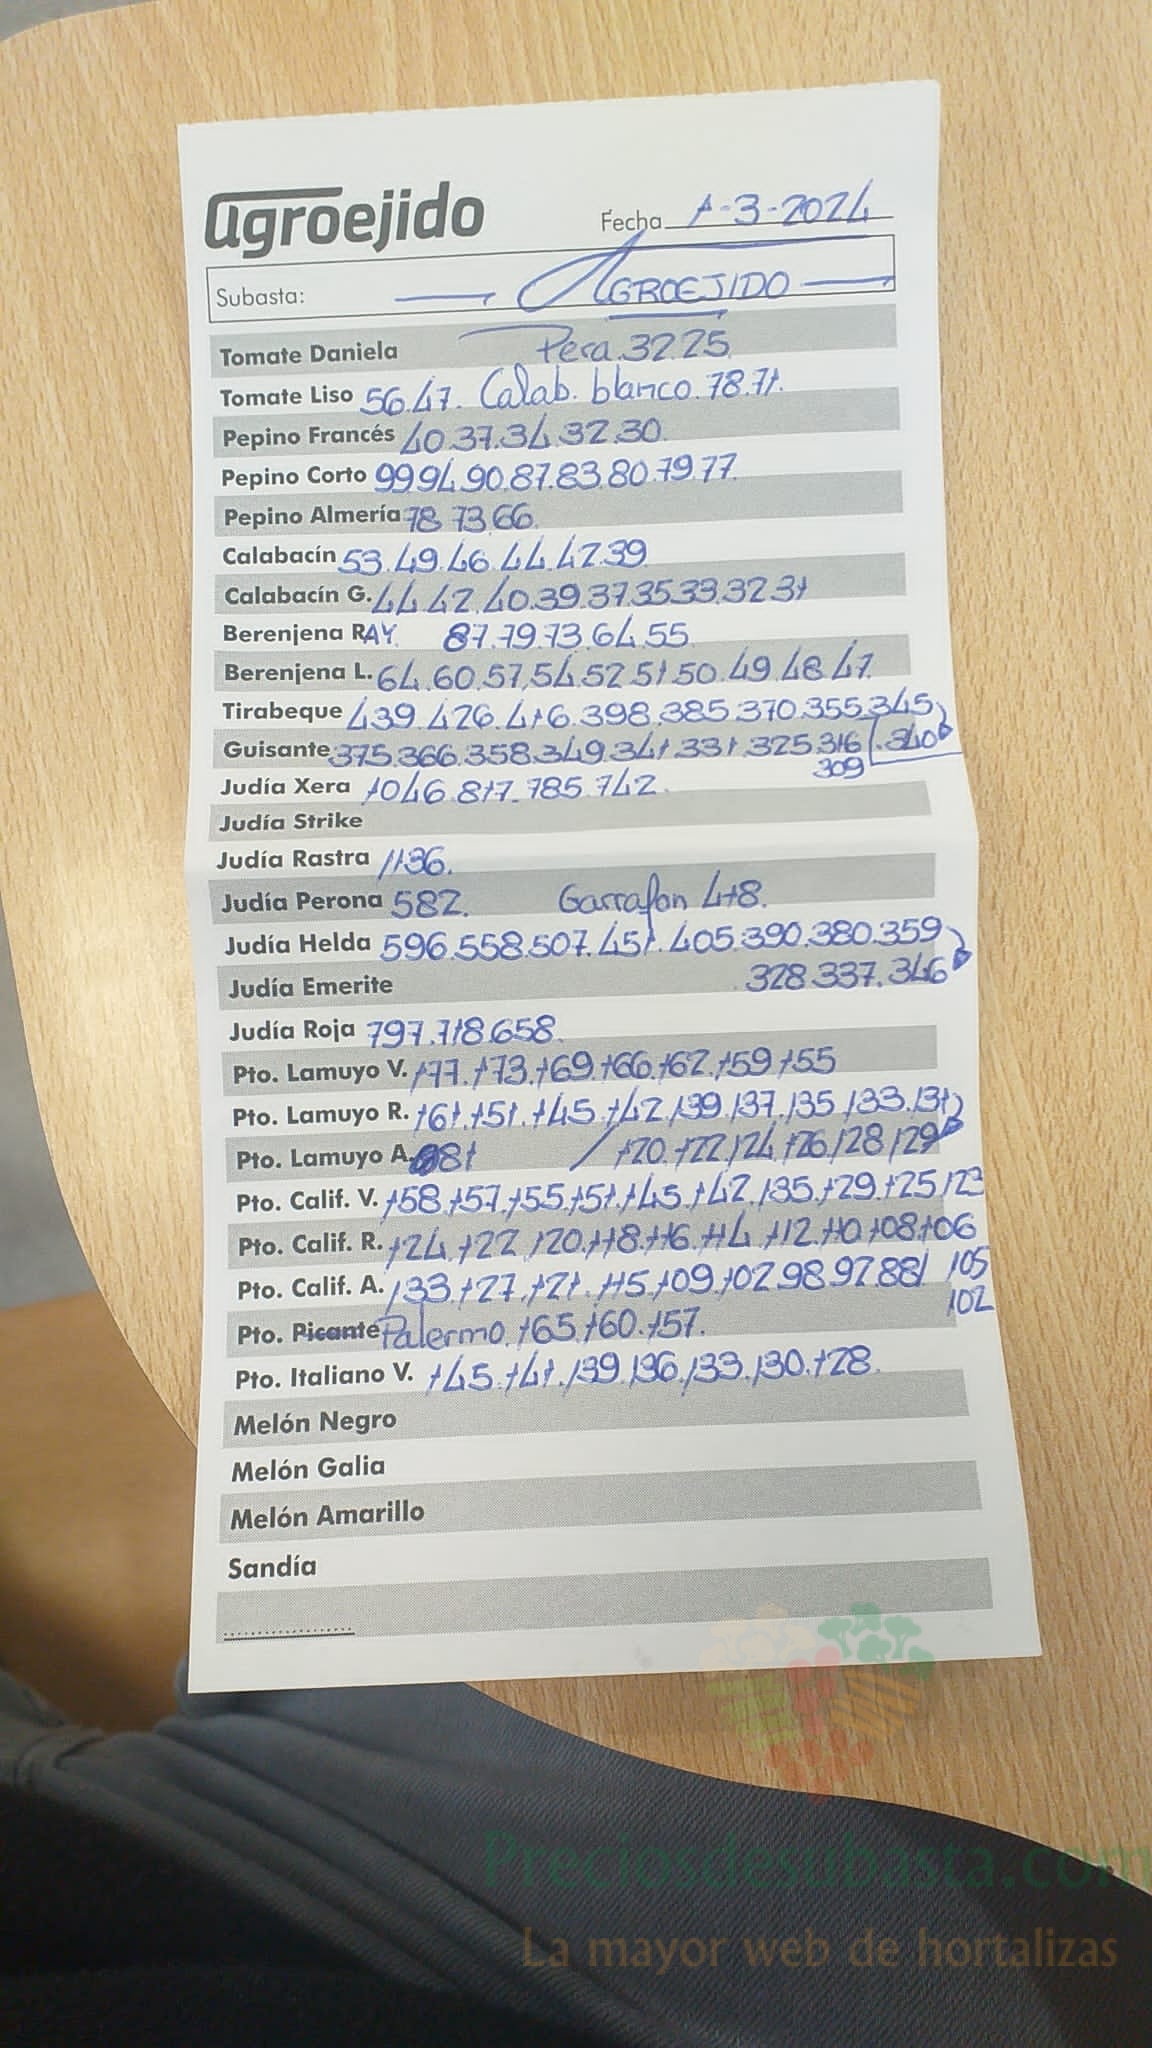 agroejido
Fecha 1-3-2024
Subasta: AGROEJIDO
Tomate Daniela Pera.32.25
Tomate Liso 56.47. Calab. blanco.78.71.
Pepino Francés 40.37.34.32.30.
Pepino Corto 99.94.90.87.83.80.79.77.
Pepino Almería 78.73.66.
Calabacín 53.49.46.44.42.39
Calabacín G. 44.42.40.39.37.35.33.32.31
Berenjena RAY. 87.79.73.64.55
Berenjena L. 64.60.57.54.52.51.50.49.48.47.
Tirabeque 439.426.416.398.385.370.355.345
Guisante 375.366.358.349.341.331.325.316 .340
309
Judía Xera 1046.817.785.742.
Judía Strike
Judía Rastra 1136.
Judía Perona 582. Garrafon 418.
Judía Helda 596.558.507.451.405.390.380.359
Judía Emerite 328.337.346
Judía Roja 797.718.658.
Pto. Lamuyo V. 177.173.169.166.162.159.155
Pto. Lamuyo R. 161.151.145.142.139.137.135.133.131
Pto. Lamuyo A. 81 / 120.122.124.126.128.129
Pto. Calif. V. 158.157.155.151.145.142.135.129.125.123
Pto. Calif. R. 124.122.120.118.116.114.112.110.108.106
Pto. Calif. A. 133.127.121.115.109.102.98.92.88/ 105
102
Pto. Picante Palermo.165.160.157.
Pto. Italiano V. 145.141.139.136.133.130.128.
Melón Negro
Melón Galia
Melón Amarillo
Sandía
Preciosdesubasta.com
La mayor web de hortalizas